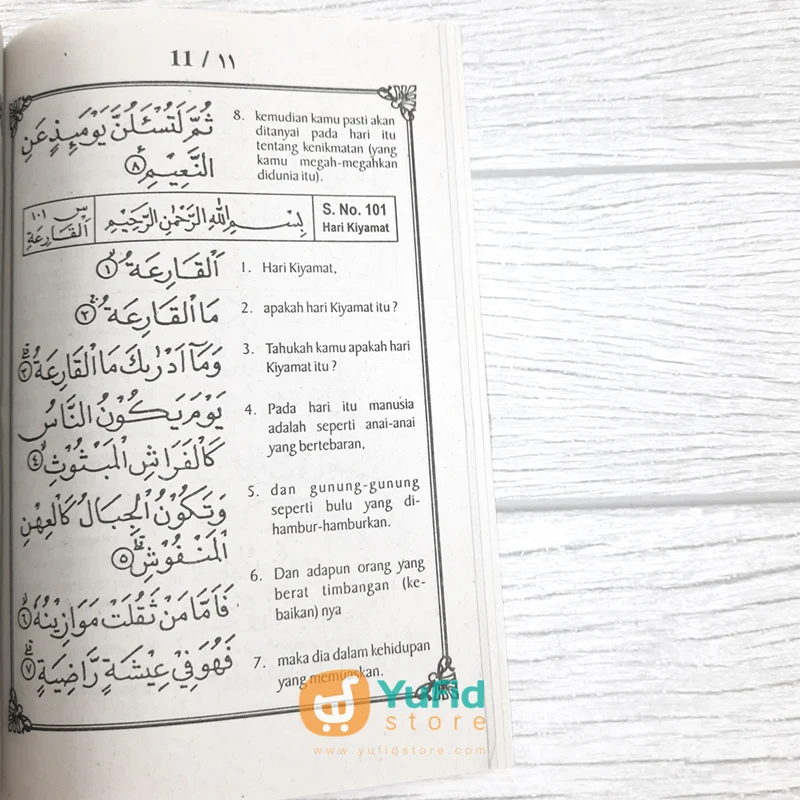 11 / ١١
ثُمَّ لَتُسْـَٔلُنَّ يَوْمَىِٕذٍ عَنِ
النَّعِيْمِ ࣖ ٨
8. kemudian kamu pasti akan
ditanyai pada hari itu
tentang kenikmatan (yang
kamu megah-megahkan
didunia itu).
س ١٠١
اَلْقَارِعَةِ
بِسْمِ اللهِ الرَّحْمٰنِ الرَّحِيْمِ
S. No. 101
Hari Kiyamat
اَلْقَارِعَةُ ۙ ١
1. Hari Kiyamat,
مَا الْقَارِعَةُ ۚ ٢
2. apakah hari Kiyamat itu ?
وَمَآ اَدْرٰىكَ مَا الْقَارِعَةُ ۗ ٣
3. Tahukah kamu apakah hari
Kiyamat itu ?
يَوْمَ يَكُوْنُ النَّاسُ
كَالْفَرَاشِ الْمَبْثُوْثِ ۙ ٤
4. Pada hari itu manusia
adalah seperti anai-anai
yang bertebaran,
وَتَكُوْنُ الْجِبَالُ كَالْعِهْنِ
الْمَنْفُوْشِ ۗ ٥
5. dan gunung-gunung
seperti bulu yang di-
hambur-hamburkan.
فَاَمَّا مَنْ ثَقُلَتْ مَوَازِيْنُهٗ ۙ ٦
6. Dan adapun orang yang
berat timbangan (ke-
baikan) nya
فَهُوَ فِيْ عِيْشَةٍ رَّاضِيَةٍ ۗ ٧
7. maka dia dalam kehidupan
yang memuaskan.
Yufid
store
www.yufidstore.com